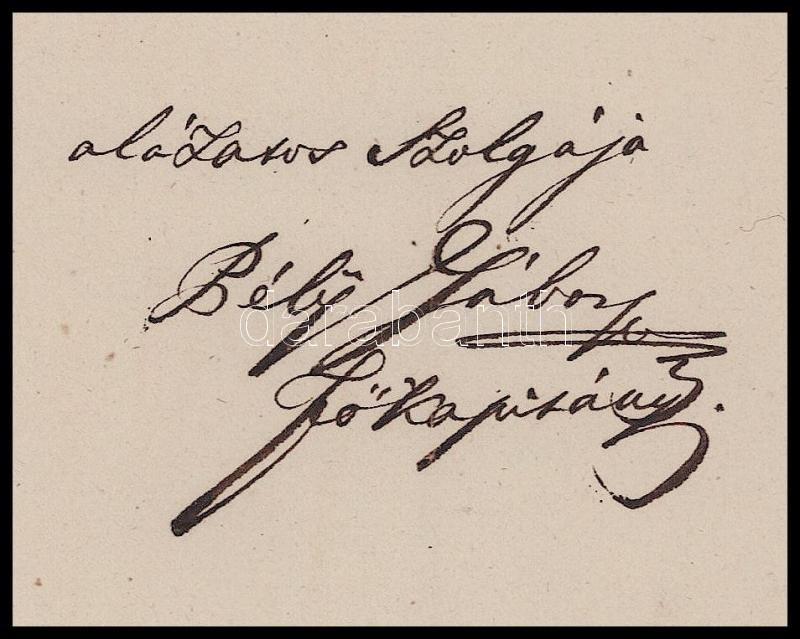 alázatos Szolgája
Bély Gábor
darabanth
Főkapitány.